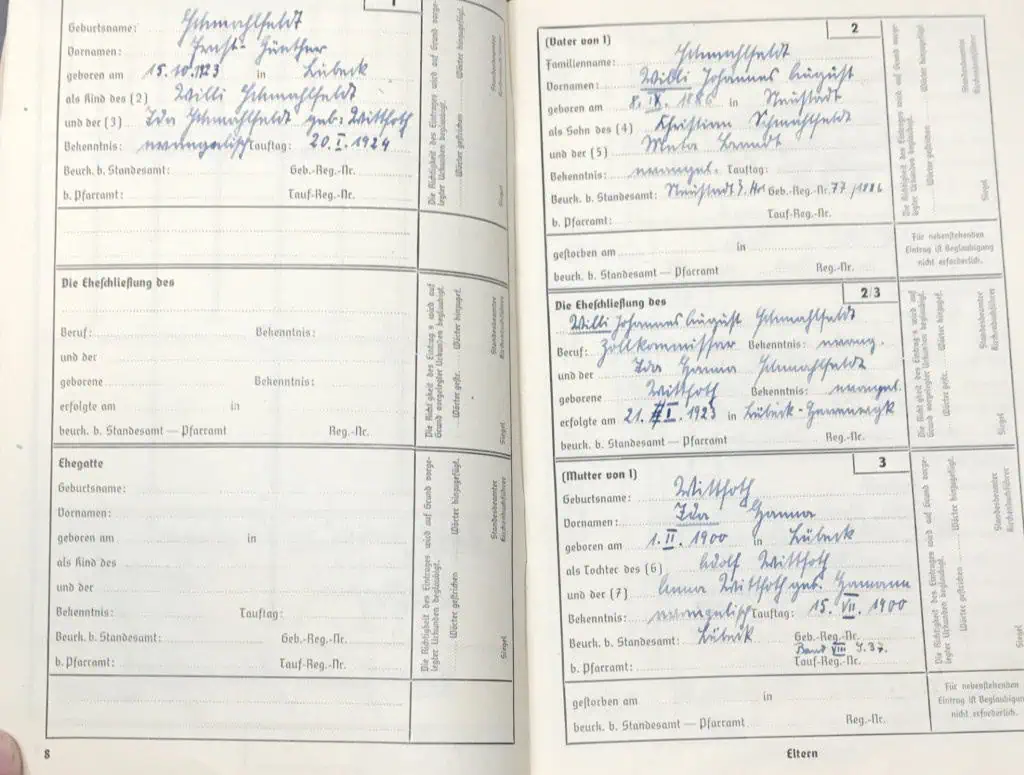 1
Geburtsname: Schmahlfeldt
Vornamen: Ernst-Günther
geboren am 15.10.1923 in Lübeck
als Kind des (2) Willi Schmahlfeldt
und der (3) Ida Schmahlfeldt geb: Witthoth
Bekenntnis: evangelisch Tauftag: 20.I.1924
Beurk. b. Standesamt: Geb.-Reg.-Nr.
b. Pfarramt: Tauf-Reg.-Nr.
Die Richtigkeit des Eintrages wird auf Grund vorgelegter Urkunden beglaubigt.
Wörter gestrichen Wörter hinzugefügt.
Standesbeamter
Kirchenbuchführer
Siegel
Die Eheschließung des
Beruf: Bekenntnis:
und der
geborene Bekenntnis:
erfolgte am in
beurk. b. Standesamt — Pfarramt Reg.-Nr.
Die Richtigkeit des Eintrags wird auf Grund vorgelegter Urkunden beglaubigt.
Wörter gestr. Wörter hinzugef.
Standesbeamter
Kirchenbuchführer
Siegel
Ehegatte
Geburtsname:
Vornamen:
geboren am in
als Kind des
und der
Bekenntnis: Tauftag:
Beurk. b. Standesamt: Geb.-Reg.-Nr.
b. Pfarramt: Tauf-Reg.-Nr.
Die Richtigkeit des Eintrages wird auf Grund vorgelegter Urkunden beglaubigt.
Wörter gestrichen Wörter hinzugefügt.
Standesbeamter
Kirchenbuchführer
Siegel
8
2
(Vater von 1)
Familienname: Schmahlfeldt
Vornamen: Willi Johannes August
geboren am 8.IX.1886 in Neustadt
als Sohn des (4) Christian Schmahlfeldt
und der (5) Meta Brandt
Bekenntnis: evangel. Tauftag:
Beurk. b. Standesamt: Neustadt Geb.-Reg.-Nr. 77/1886
b. Pfarramt: Tauf-Reg.-Nr.
Die Richtigkeit des Eintrages wird auf Grund vorgelegter Urkunden beglaubigt.
Wörter gestrichen Wörter hinzugefügt.
Standesbeamter
Kirchenbuchführer
Siegel
gestorben am in
beurk. b. Standesamt — Pfarramt Reg.-Nr.
Für nebenstehenden
Eintrag ist Beglaubigung
nicht erforderlich.
2/3
Die Eheschließung des
Willi Johannes August Schmahlfeldt
Beruf: Zollkommissar Bekenntnis: evang.
und der Ida Hanna Schmahlfeldt
geborene Witthoth Bekenntnis: evangel.
erfolgte am 21.I.1923 in Lübeck-
beurk. b. Standesamt — Pfarramt Reg.-Nr.
Die Richtigkeit des Eintrags wird auf Grund vorgelegter Urkunden beglaubigt.
Wörter gestr. Wörter hinzugef.
Standesbeamter
Kirchenbuchführer
Siegel
3
(Mutter von 1)
Geburtsname: Witthoth
Vornamen: Ida Hanna
geboren am 1.II.1900 in Lübeck
als Tochter des (6) Adolf Witthoth
und der (7) Anna Witthoth geb. Hamann
Bekenntnis: evangelisch Tauftag: 15.VII.1900
Beurk. b. Standesamt: Lübeck Geb.-Reg.-Nr.
Band VIII S.37.
b. Pfarramt: Tauf-Reg.-Nr.
Die Richtigkeit des Eintrages wird auf Grund vorgelegter Urkunden beglaubigt.
Wörter gestrichen Wörter hinzugefügt.
Standesbeamter
Kirchenbuchführer
Siegel
gestorben am in
beurk. b. Standesamt — Pfarramt Reg.-Nr.
Für nebenstehenden
Eintrag ist Beglaubigung
nicht erforderlich.
Eltern